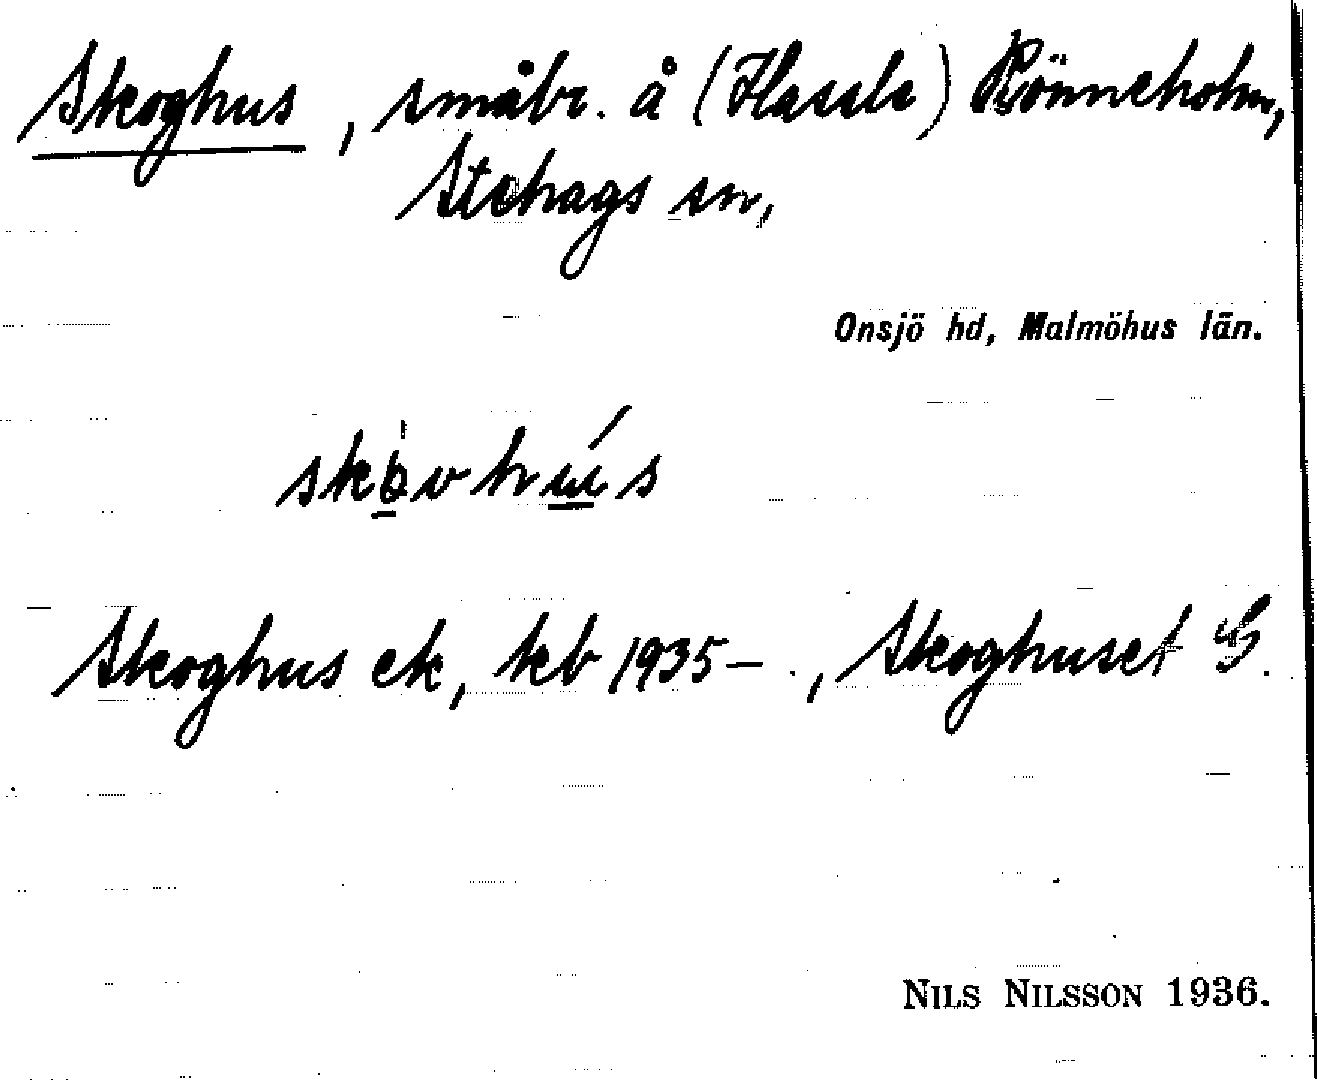 Skoghus, småbr. å (Hassle) Rönneholm,
Stehags sn,
Onsjö hd, Malmöhus län.
skovhús
Skoghus ek, kb 1935–., Skoghuset G.
NILS NILSSON 1936.